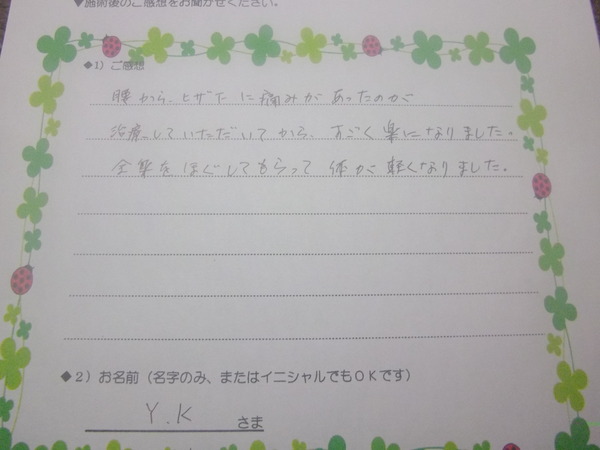 ▼施術後のご感想をお聞かせください。
◆1）ご感想
腰から、ヒザ下に痛みがあったのが
治療していただいてから、すごく楽になりました。
全身をほぐしてもらって体が軽くなりました。
◆2）お名前（名字のみ、またはイニシャルでもOKです）
Y.K さま